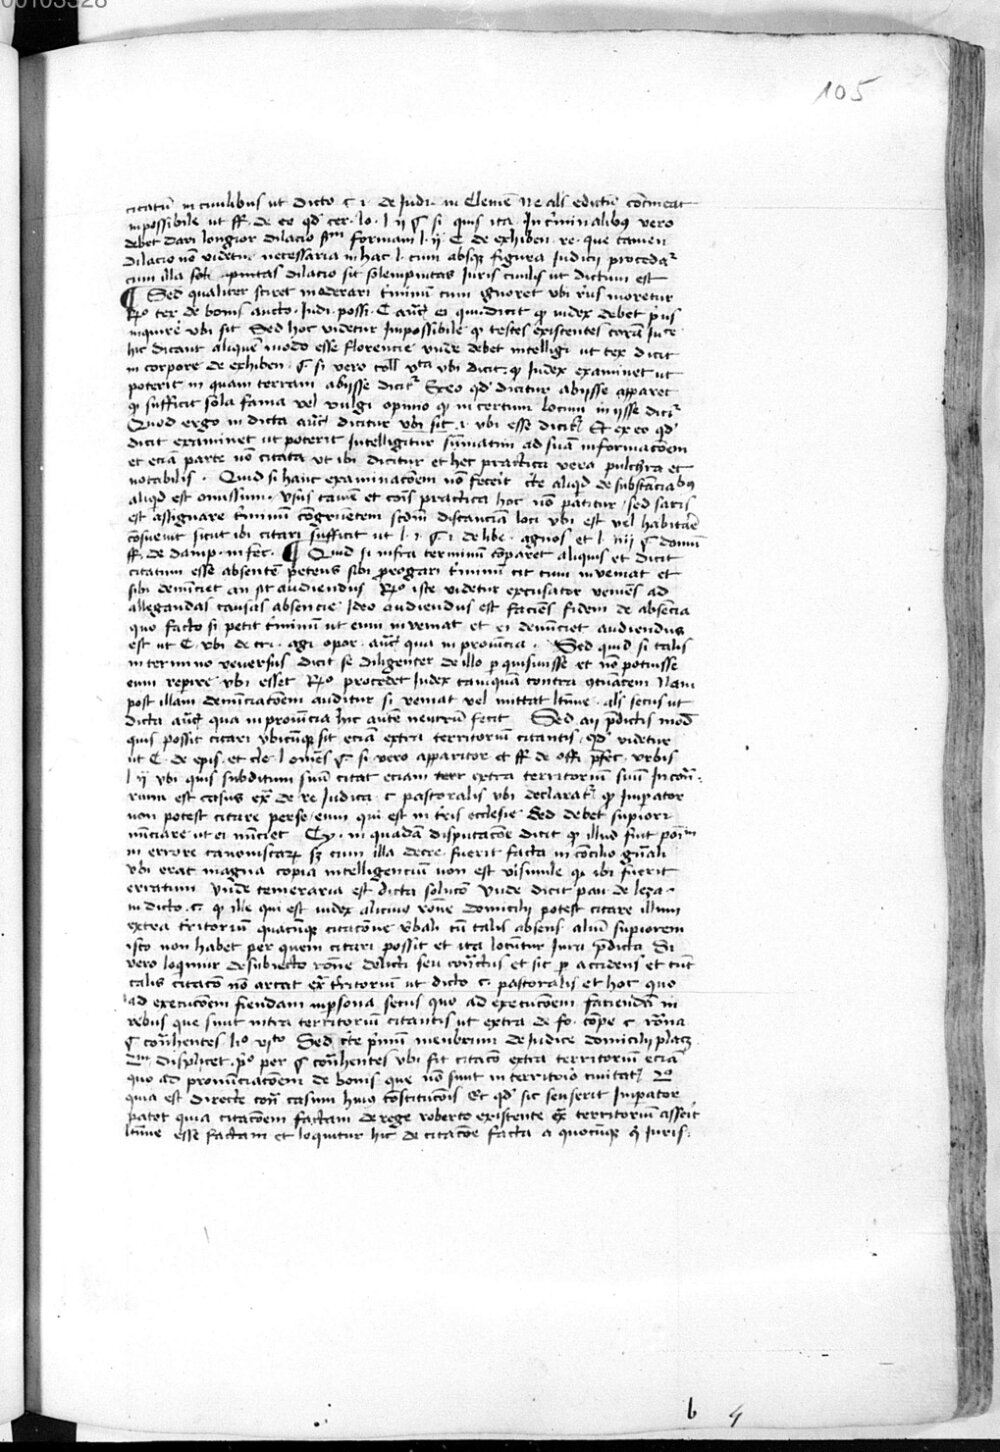 00103328
105
citatū in civilibus ut dicto c i de Judi in Cleme ne als edictū contineat
impossibile ut ff de eo qd cer lo l ii § si quis ita In criminalibus vero
debet dari longior dilacio scdm formam l ii C de exhiben re que tamen
dilacio nō videtur necessaria in hac l cum absque figura Judicii procedatr
cum illa dilacio sit solempnitas Juris civilis ut dictum est
¶ Sed qualiter sciret moderari terminū cum ignoret ubi reus moretur
Ro tex de bonis aucto Judi possi C auct ei qui dicit quod iudex debet prius
inquirere ubi sit Sed hoc videtur Impossibile quod testes existentes coram Jure
hic dicant aliquem modo esse florencie unde debet intelligi ut tex dicit
in corpore de exhiben § si vero ubi dicit quod Judex examinet ut
poterit in quam terram abiisse dicitr Ex eo qd dicitur abiisse apparet
quod sufficit sola fama vel vulgi opinio quod in certum locum iniisse dicitr
Quod ergo in dicta auct dicitur ubi sit i ubi esse dicitr Et ex eo qd
dicit examinet ut poterit Intelligitur summatim ad suā informacōem
et eciā parte nō citata ut ibi dicitur et hec practica vera pulchra et
notabilis Quid si hanc examinacōem nō fecerit certe aliqd de substancialibus
aliqd est omissum usus tamē et cōis practica hoc nō patitur sed satis
est assignare terminū congruentem scdm distanciā loci ubi est vel habitare
consuevit sicut ibi citari sufficit ut l i § i de libe agnos et l iiii § domum
ff de damp infec ¶ Quid si infra terminum compareret aliquis et dicit
citatum esse absentē petens sibi prorogari terminū cit cum inveniat et
sibi denunciet an sit audiendus Ro iste videtur excusator veniens ad
allegandas causas absencie Ideo audiendus est faciens fidem de absencia
quo facto si petit terminū ut eum inveniat et ei denunciet audiendus
est ut C ubi de cri agi opor auct qua in provincia Sed quid si talis
in termino reversus dicit se diligenter de illo perquisivisse et nō potuisse
eum reperire ubi esset Ro procedet Judex tamquam contra contumacem Nam
post illam denunciacōem auditur si veniat vel mittat als secus ut
dicta auct qua in provincia hic autē neutrum fecit Sed an predictis modis
quis possit citari ubicunque sit eciam extra territoriū citantis qd videtur
ut C de epis et cle l omnes § si vero apparitor et ff de offi prefec urbis
l ii ubi quis subditum suū citat eciam extra territoriū suū In con
rium est casus ext de re Judica c pastoralis ubi declaratr quod Imperator
non potest citare per se eum qui est in terris ecclesie Sed debet superiori
nunciare ut ei nunciet Cy in quadā disputacōe dicit quod illud fuit
in errore canonistarum sed cum illa decre fuerit facta in concilio generali
ubi erat magna copia intelligencium non est visimile quod ibi fuerit
erratum Unde temeraria est dicta solucō Unde dicit pau de leza
in dicto c quod ille qui est iudex alicuius racione domicilii potest citare illum
extra territoriū quacunque citacōne verbali cum talis absens aliū superiorem
isto non habet per quem citari possit et ita locuntur Jura predicta Si
vero loquimur de subiecto racione delicti seu contractus et sic per accidens et tunc
talis citacō nō artat extra territoriū ut dicto c pastoralis et hoc quo
ad execucōem fiendam in persona secus quo ad execucōem faciendā in
rebus que sunt intra territoriū citantis ut extra de fo compe c romana
§ contrahentes li vito Sed certe primū membrum de Judice domicilii placet
2m displicet primo per § contrahentes ubi fit citacō extra territoriū eciā
quo ad pronunciacōem de bonis que nō sunt in territorio civitatis 2o
quia est directe contra casum huius constitucōis Et qd sic senserit Imperator
patet quia citacōem factam de rege roberto existente extra territorium asserit
esse factam et loquitur hic de citacōe facta a quocunque Juris
b 4